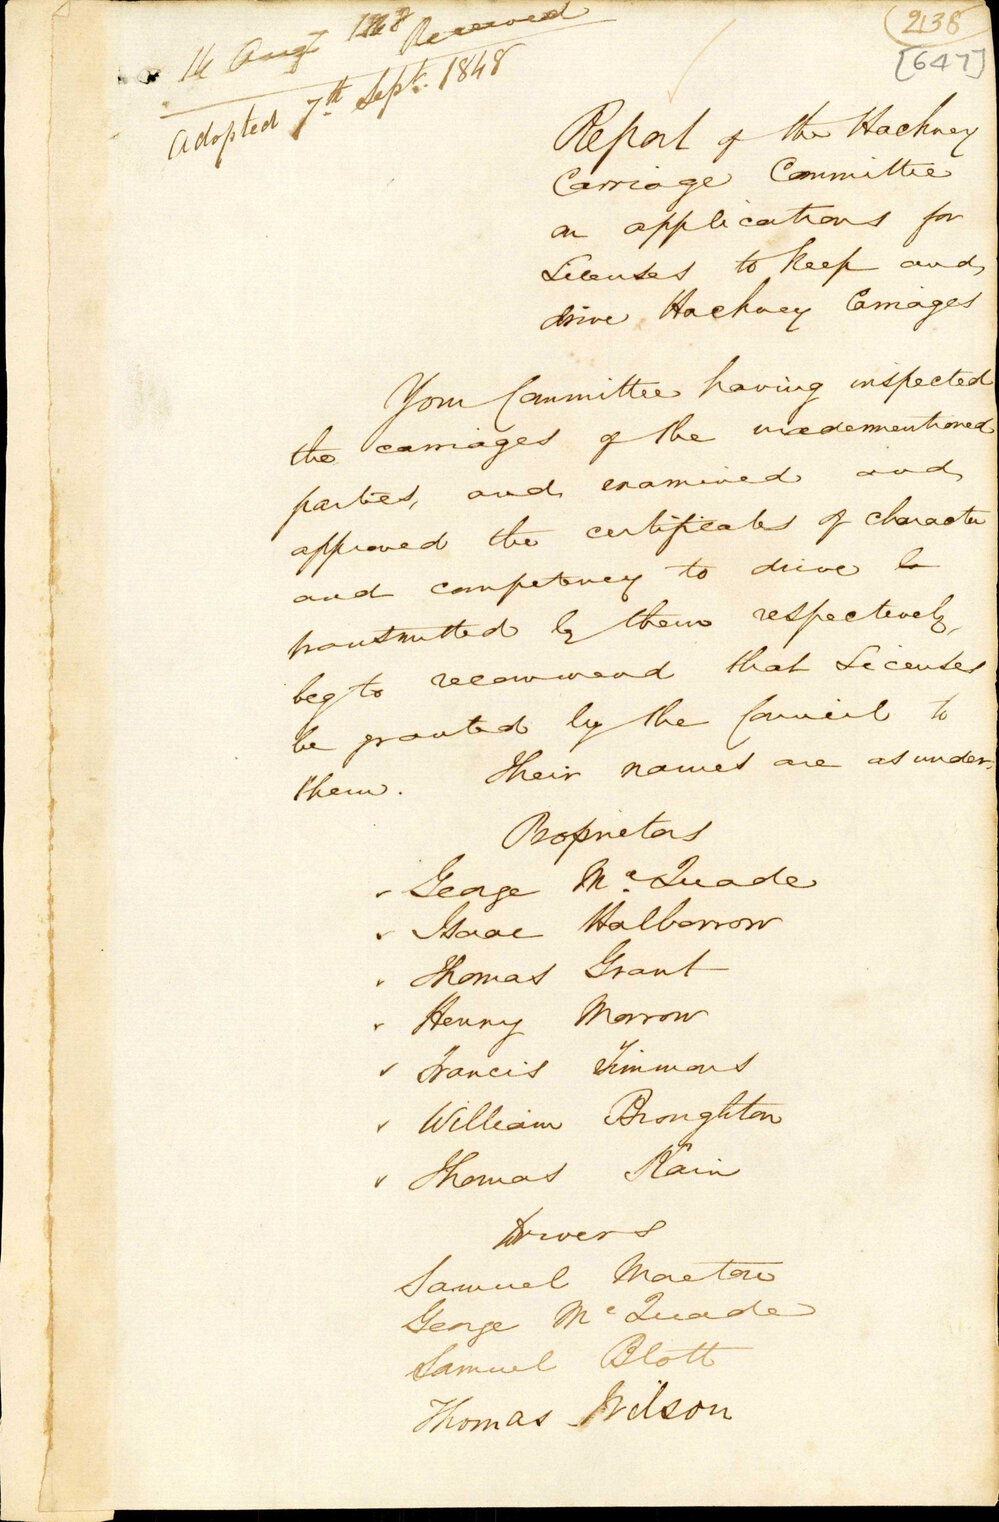 14 Augt 1848 Received
Adopted 7th Sept. 1848
238
[647]
Report of the Hackney
Carriage Committee
on applications for
Licenses to keep and
drive Hackney Carriages
Your Committee having inspected
the carriages of the undermentioned
parties, and examined and
approved the certificates of character
and competency to drive &c
transmitted by them respectively,
beg to recommend that Licenses
be granted by the Council to
them. Their names are as under.
Proprietors
George McQuade
Isaac Halborrow
Thomas Grant
Henry Morrow
Francis Timmons
William Broughton
Thomas Kain
Drivers
Samuel
George McQuade
Samuel Blott
Thomas Wilson